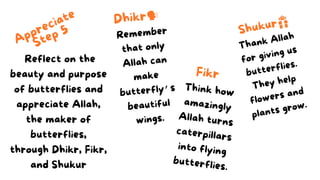 Appreciate
Step 5
Reflect on the
beauty and purpose
of butterflies and
appreciate Allah,
the maker of
butterflies,
through Dhikr, Fikr,
and Shukur
Dhikr
Remember
that only
Allah can
make
butterfly's
beautiful
wings.
Fikr
Think how
amazingly
Allah turns
caterpillars
into flying
butterflies.
Shukur
Thank Allah
for giving us
butterflies.
They help
flowers and
plants grow.